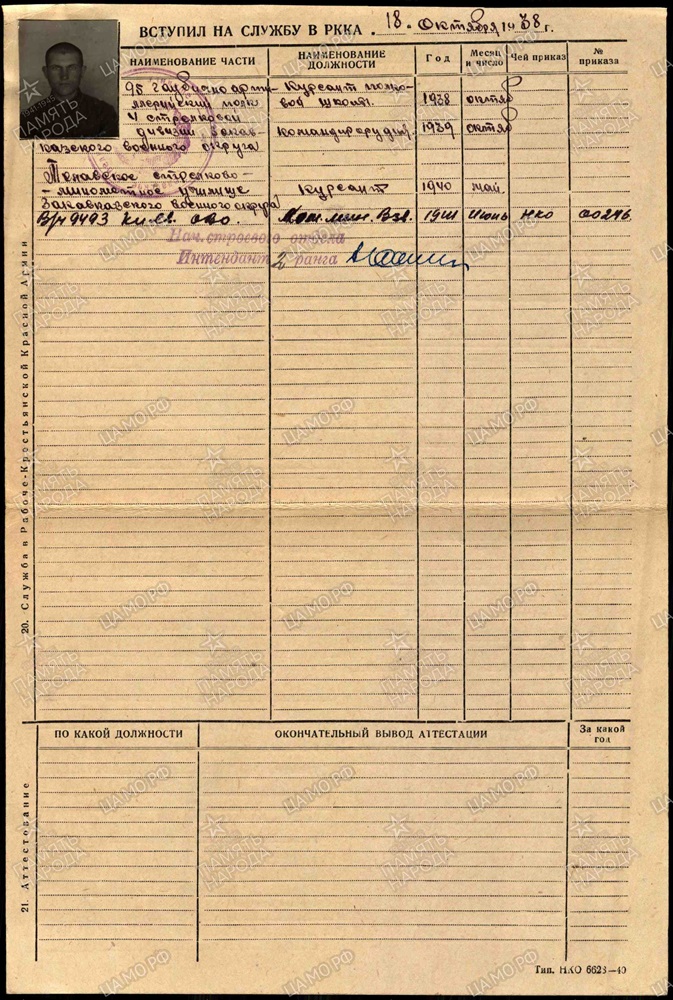 ВСТУПИЛ НА СЛУЖБУ В РККА . 18 . октября 1938 г.
НАИМЕНОВАНИЕ ЧАСТИ
НАИМЕНОВАНИЕ ДОЛЖНОСТИ
Год
Месяц и число
Чей приказ
№ приказа
95 Гаубично арти- Курсант полко-
ллерийский полк вой школы. 1938 октяб
4 стрелковой
дивизии Закав- командир орудия 1939 октяб
казского военного округа
стрелково-
-миномётное училище Курсант 1940 май.
Закавказского военного округа
В/ч 9493 ОВО. Ком. мин. Взв. 1941 Июнь НКО 00246
Нач. строевого отдела
Интендант 2 ранга
20. Служба в Рабоче-Крестьянской Красной Армии
ПО КАКОЙ ДОЛЖНОСТИ
ОКОНЧАТЕЛЬНЫЙ ВЫВОД АТТЕСТАЦИИ
За какой год
21. Аттестование
Тип. НКО 6623—40
ПАМЯТЬ НАРОДА
ЦАМО.РФ